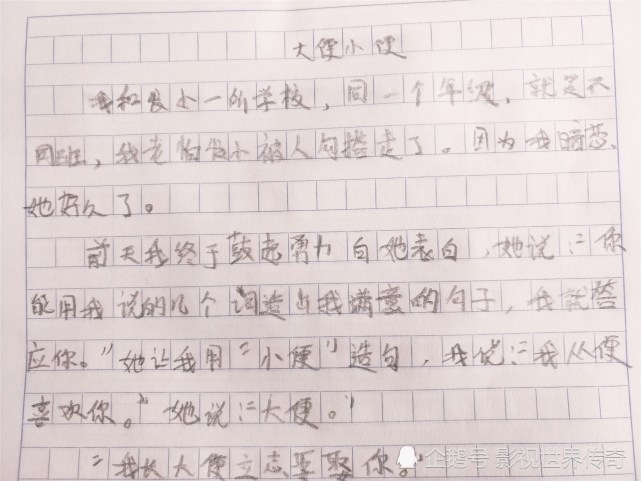 大便小便
我和发小一所学校，同一个年级，就是不
同班，我老怕发小被人勾搭走了。因为我暗恋
她好久了。
前天我终于鼓起勇力向她表白，她说：“你
能用我说的几个词造出我满意的句子，我就答
应你。”她让我用“小便”造句，我说：“我从小便
喜欢你。”她说：“大便。”
“我长大便立志要娶你。”
企鹅号 影视世界传奇